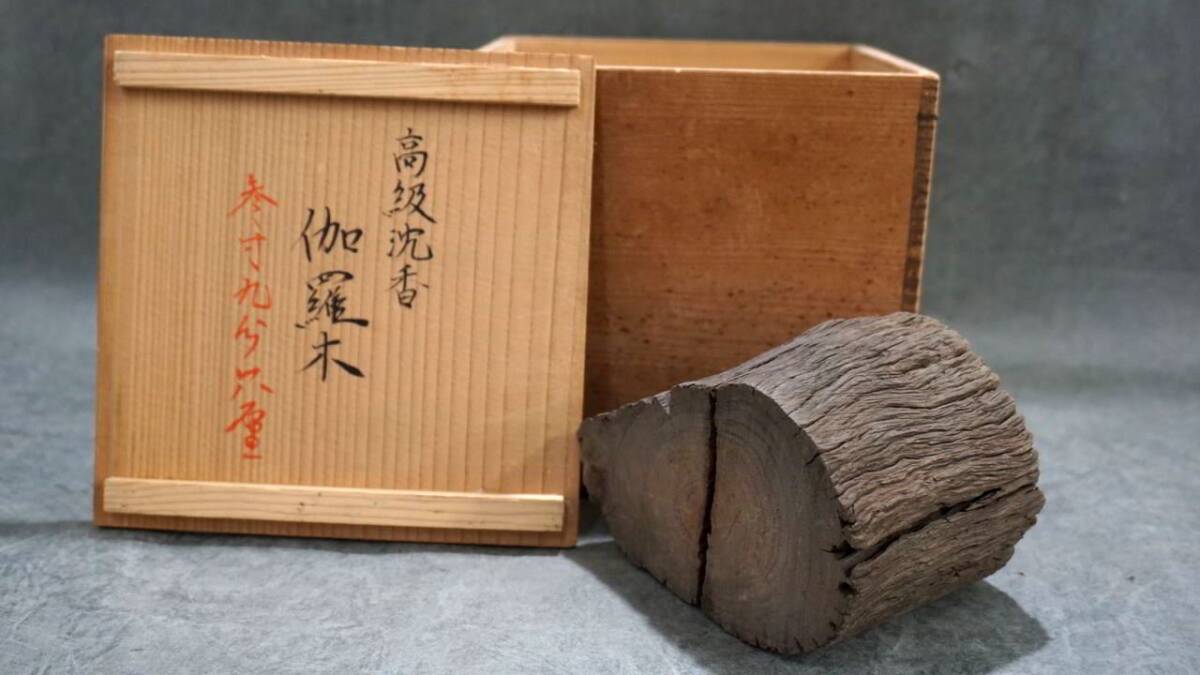 高級沈香
伽羅木
参寸九分六厘